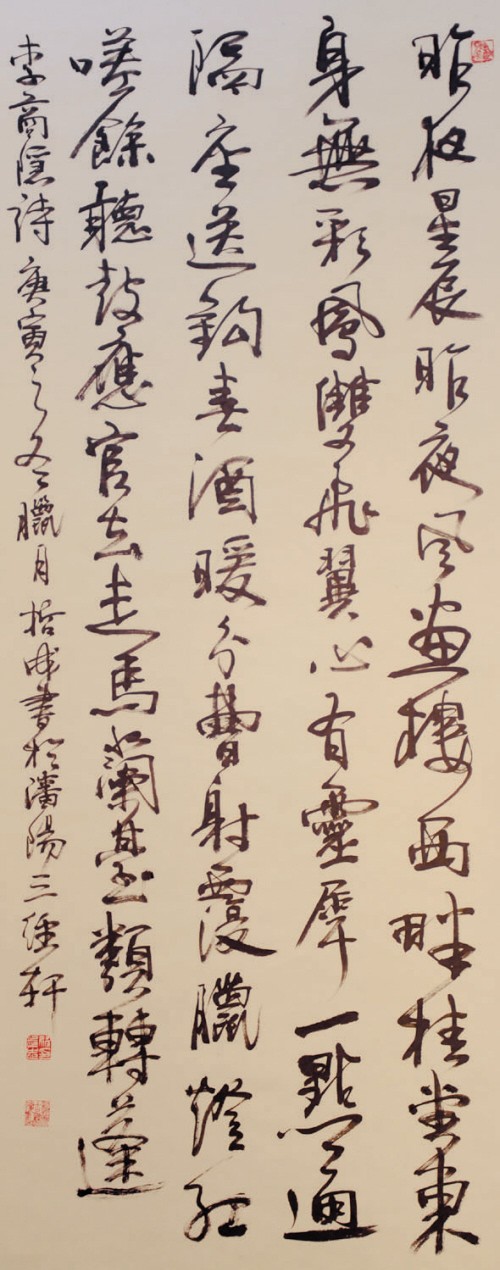 昨夜星辰昨夜风畫樓西畔桂堂東
身無彩鳳雙飛翼心有靈犀一點通
隔座送鈎春酒暖分曹射覆臘燈紅
嗟餘聽鼓應官去走馬蘭臺類轉蓬
李商隱詩庚寅之冬臘月書於瀋陽三軒